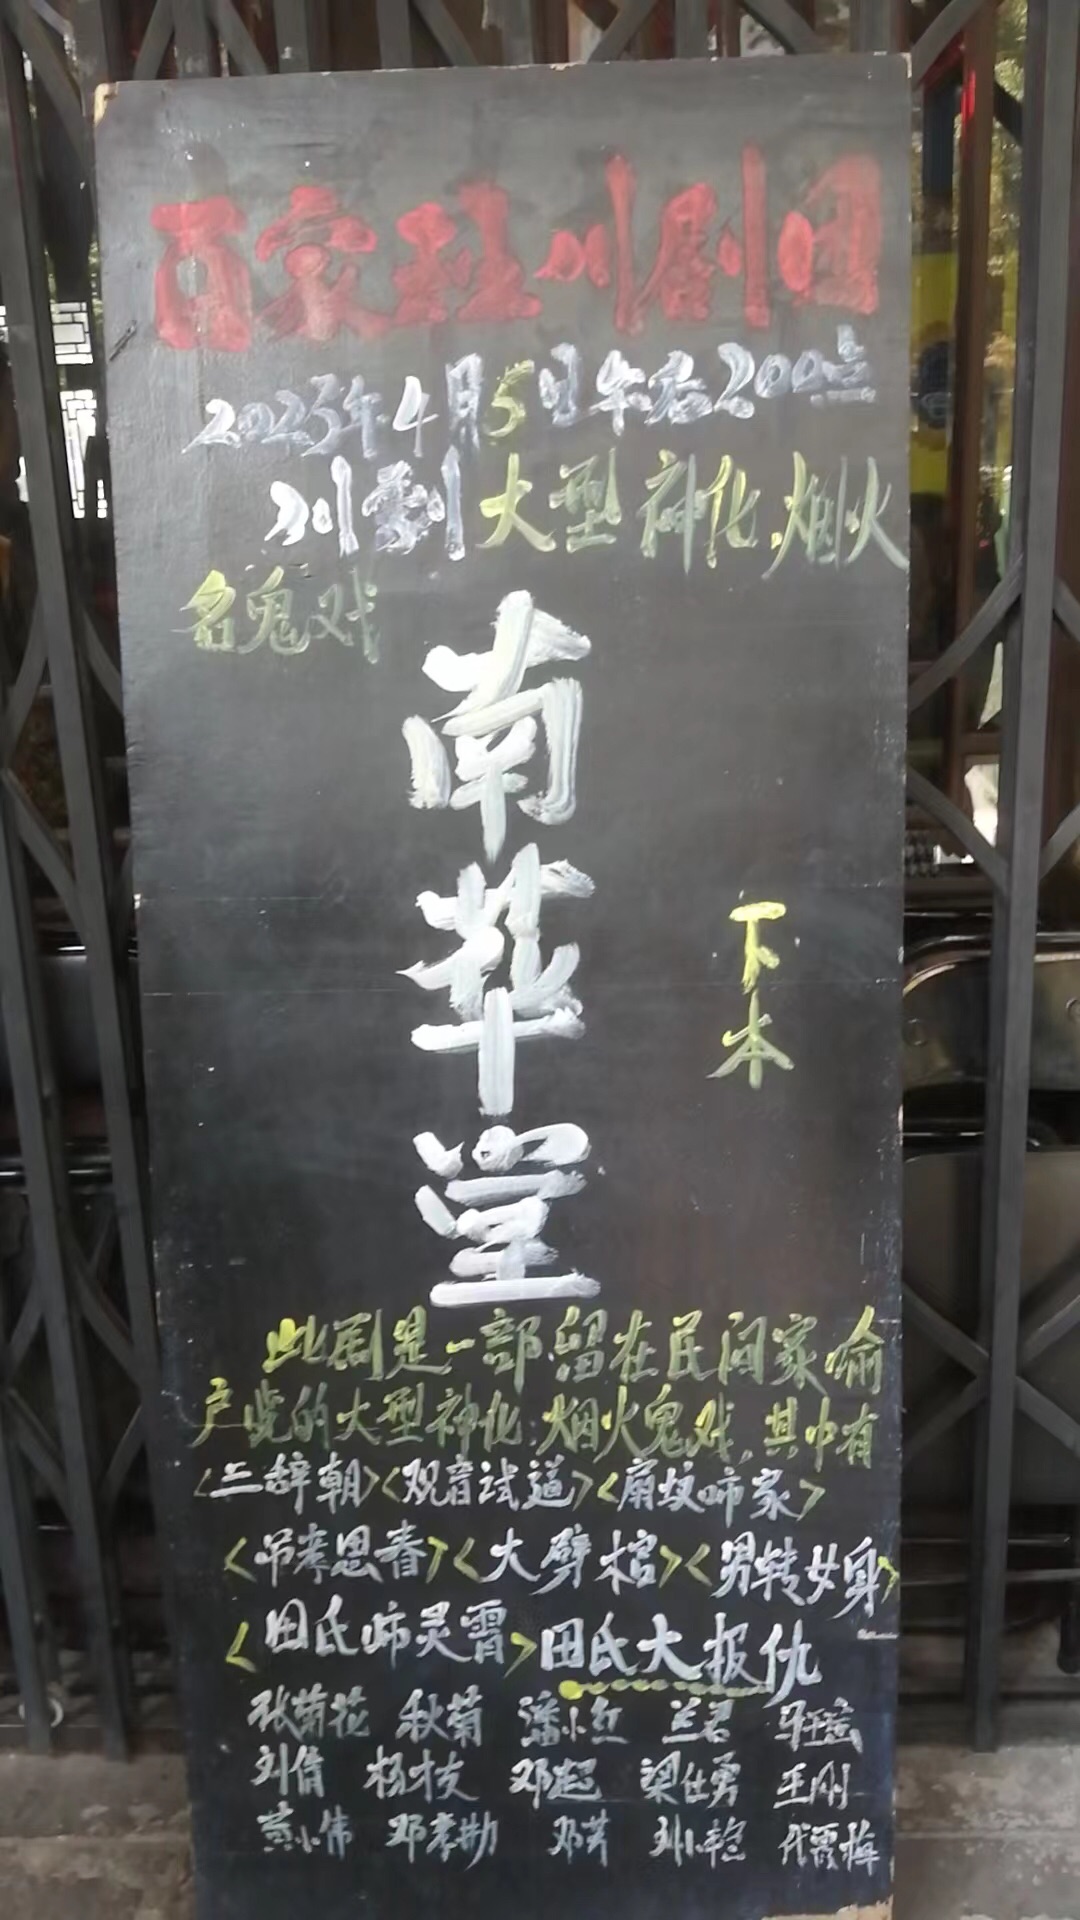 百家班川剧团
2023年4月5日午后200点
川剧大型神化.烟火
名鬼戏
南华堂
下
本
此剧是一部.留在民间家.喻
户览的大型神化.烟火鬼戏.其中有
<三辞朝><观音试道><扇坟啼家>
<吊孝思春><大劈棺><男转女身>
<田氏啼灵霄>田氏大报仇
张菊花 秋菊 潘小红 兰君 马玉瑶
刘倩 杨枝 邓起 梁仕勇 王刚
黄小伟 邓孝勋 邓芳 刘小艳 代霞梅